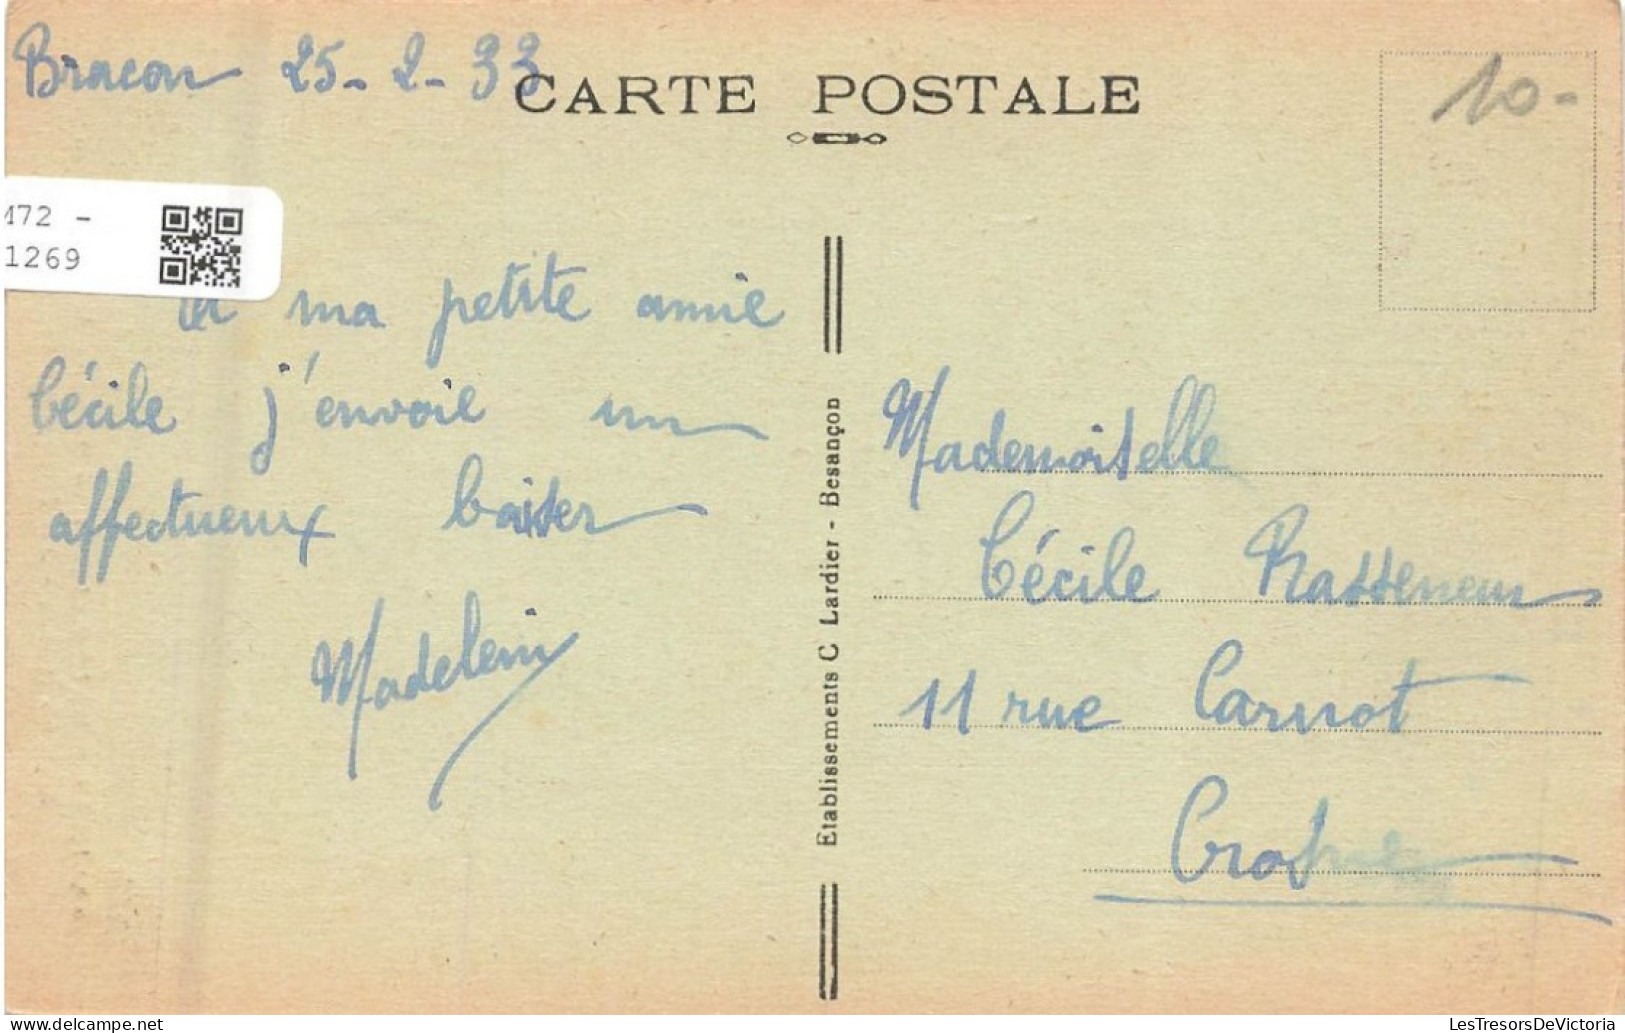 Bracon 25-2-33
CARTE POSTALE
10-
172 -
1269
A ma petite amie
Cécile j'envoie un
affectueux baiser
Madeleine
Etablissements C Lardier - Besançon
Mademoiselle
Cécile
11 rue Carnot
LesTresorsDeVictoria